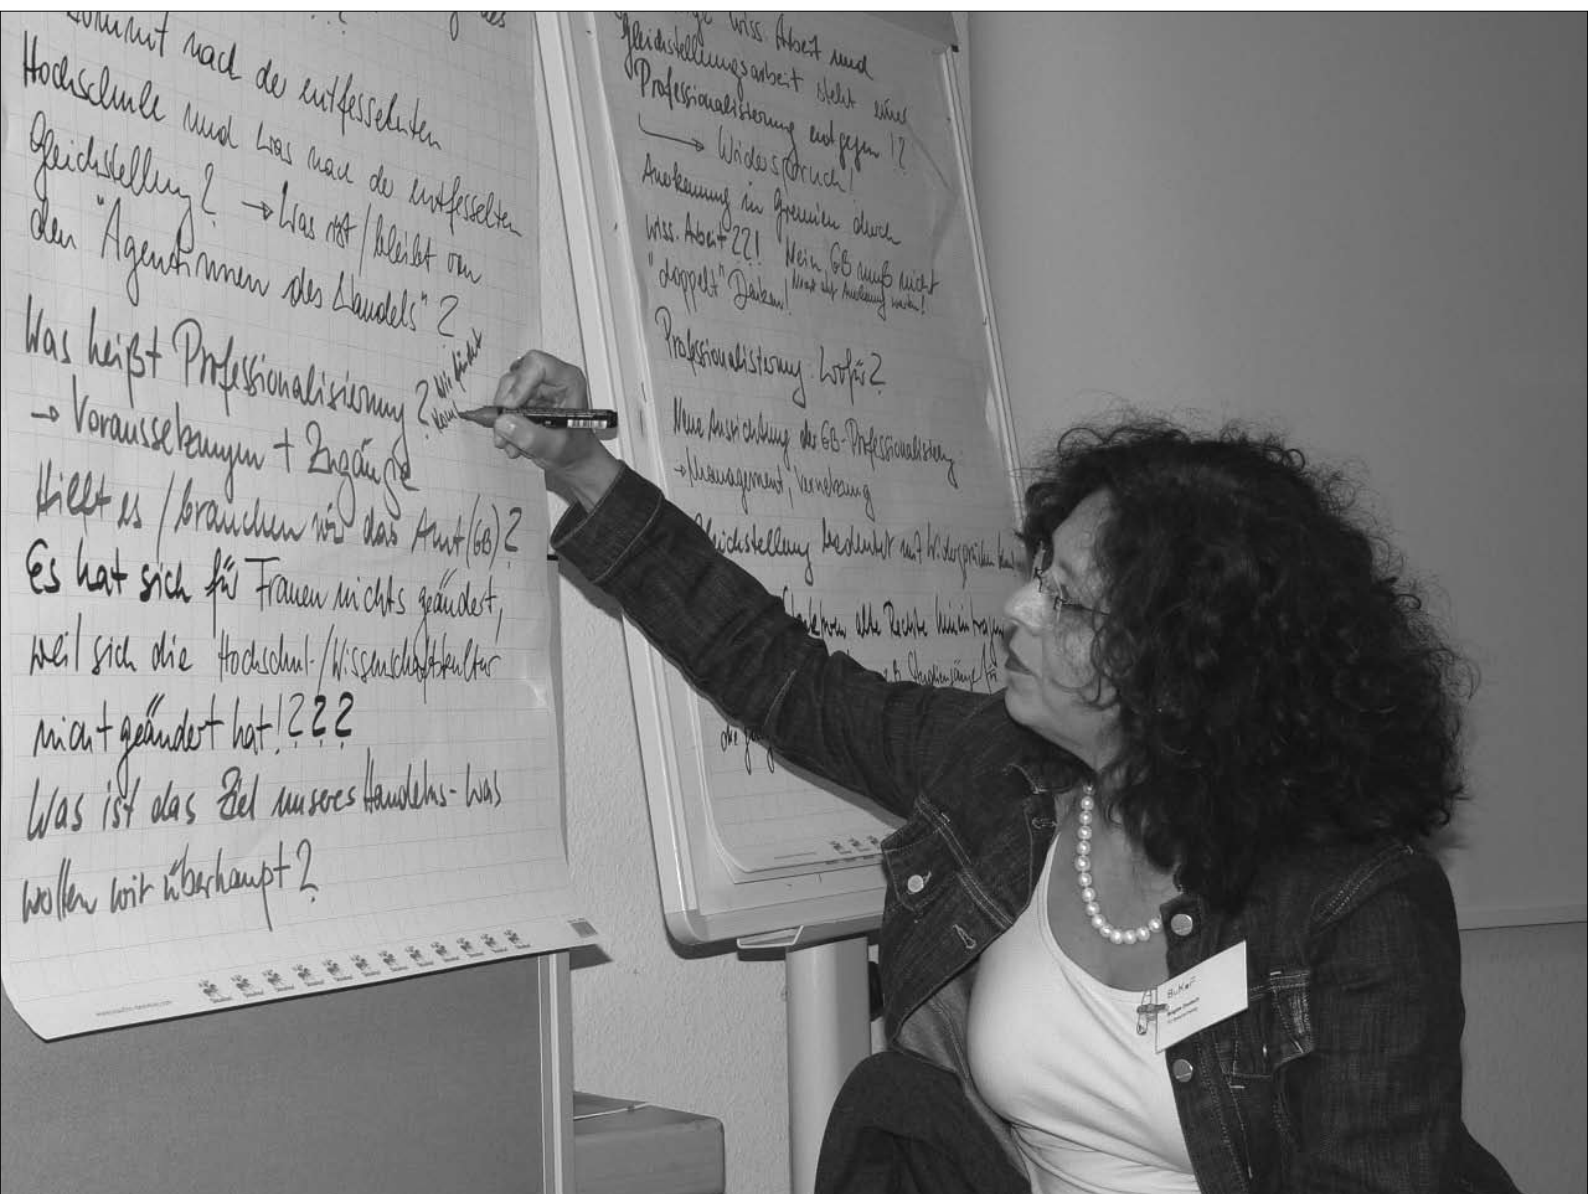 kommt nach der entfesselten
Hochschule und was nach der entfesselten
Gleichstellung? → Was ist/bleibt von
den "Agentinnen des Wandels"?
Was heißt Professionalisierung?
→ Voraussetzungen + Zugänge
Hilft es / brauchen wir das Amt (GB)?
Es hat sich für Frauen nichts geändert,
weil sich die Hochschul-/Wissenschaftskultur
nicht geändert hat!???
Was ist das Ziel unseres Handelns - was
wollen wir überhaupt?
wiss. Arbeit und
Gleichstellungsarbeit steht einer
Professionalisierung entgegen!?
→ Widerspruch!
Anerkennung in Gremien durch
wiss. Arbeit??! Nein, GB muß nicht
"doppelt" Denken!
Professionalisierung. Wofür?
Neue Ausrichtung der GB-Professionalisierung
→ Management, Vernetzung
Gleichstellung bedeutet mit Widersprüchen
alte Rechte
die
BuKoF